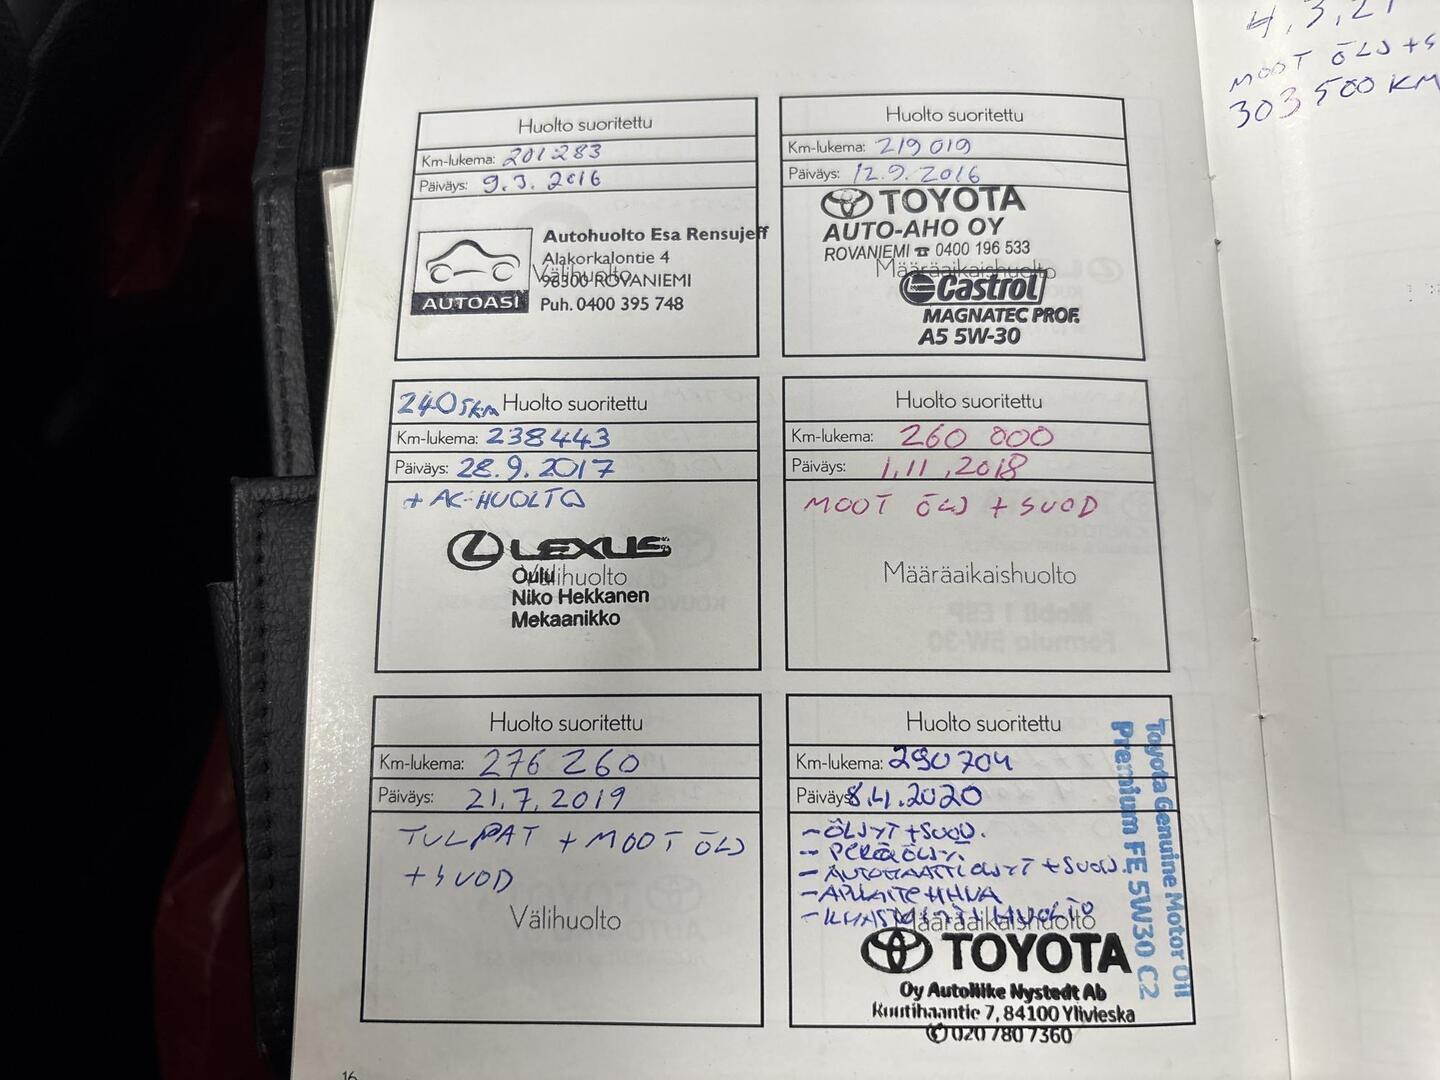 Huolto suoritettu
Km-lukema: 201283
Päiväys: 9.3.2016
Autohuolto Esa Rensujeff
Alakorkalontie 4
Välihuolto
96300 ROVANIEMI
AUTOASI
Puh. 0400 395 748
Huolto suoritettu
Km-lukema: 219019
Päiväys: 12.9.2016
TOYOTA
AUTO-AHO OY
ROVANIEMI ☎ 0400 196 533
Määräaikaishuolto
Castrol
MAGNATEC PROF.
A5 5W-30
240tkm Huolto suoritettu
Km-lukema: 238443
Päiväys: 28.9.2017
+ AC-HUOLTO
LEXUS
Oulu
Välihuolto
Niko Hekkanen
Mekaanikko
Huolto suoritettu
Km-lukema: 260 000
Päiväys: 1.11.2018
MOOT ÖLJ + SUOD
Määräaikaishuolto
Huolto suoritettu
Km-lukema: 276 260
Päiväys: 21.7.2019
TULPAT + MOOT ÖLJ
+ SUOD
Välihuolto
Huolto suoritettu
Km-lukema: 290704
Päiväys: 8.4.2020
- ÖLJYT + SUOD.
- PERÄÖLJY.
- AUTOMAATTIÖLJYT + SUOD.
- 
Määräaikaishuolto
TOYOTA
Oy Autoliike Nystedt Ab
Ruutihaantie 7, 84100 Ylivieska
✆ 020 780 7360
Toyota Genuine Motor Oil
Premium FE 5W30 C2
4.3.21
MOOT ÖLJ + S
303 500 KM
16